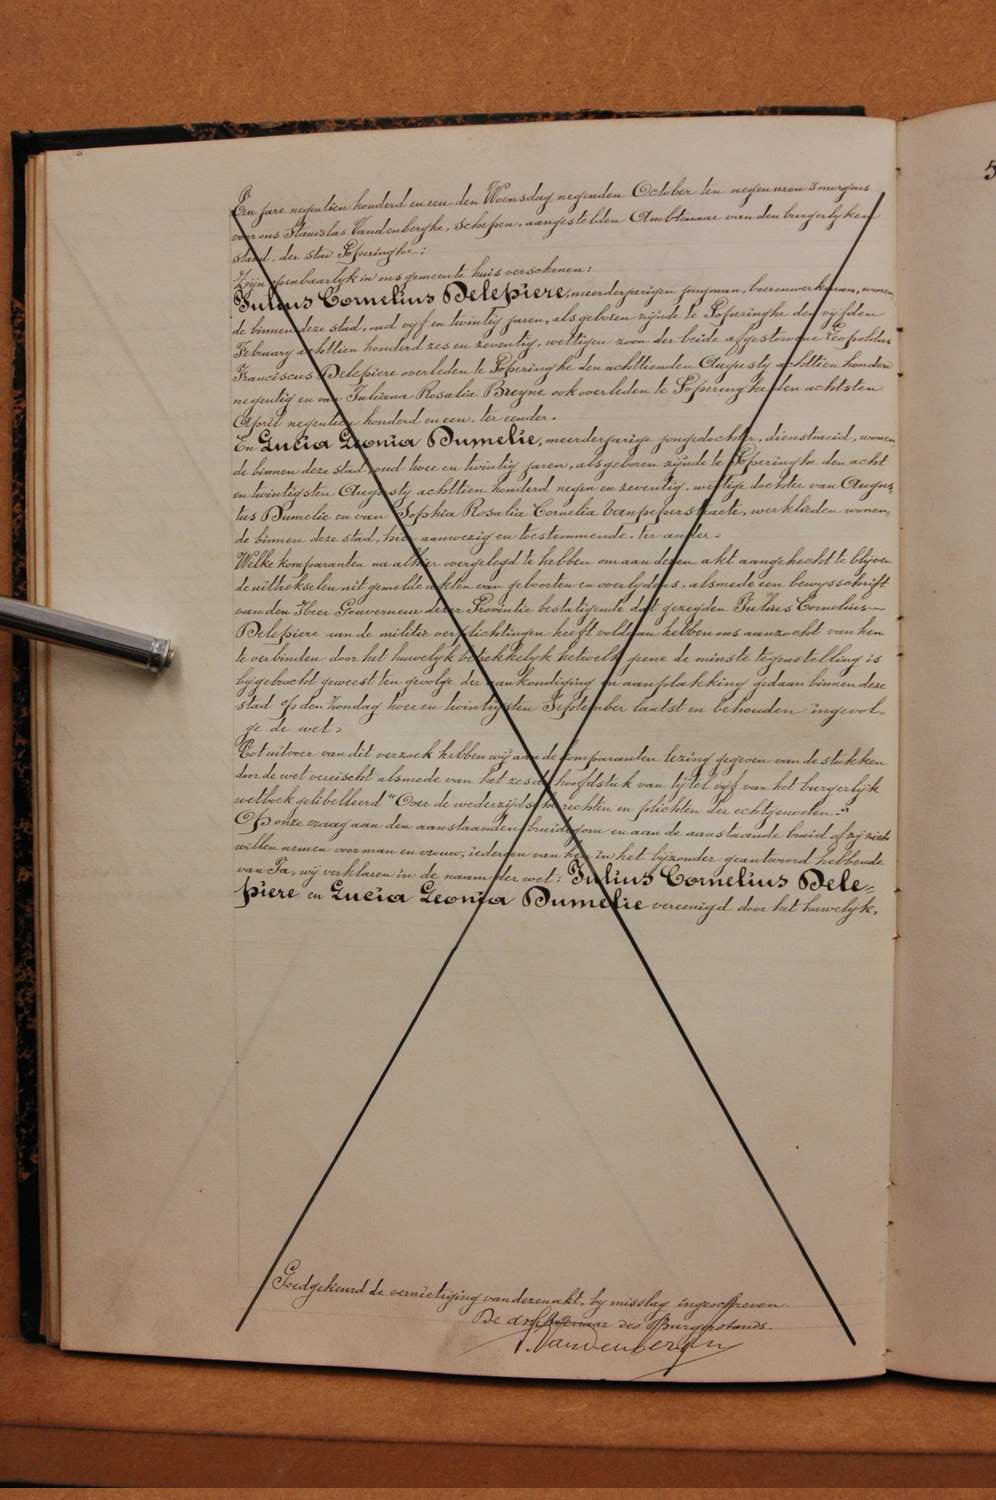 Ten jare negentien honderd en een den Woensdag negenden October ten negen uren 's morgens
voor ons Stanislas Vandenberghe, Schepen, aangestelden Ambtenaar van den burgerlyken
stand, der stad Poperinghe;
Zyn openbaarlyk in ons gemeente huis verschenen:
Julius Cornelius Delepiere, meerderjarigen jongman, boerenwerkman, wonen-
de binnen deze stad, oud vyf en twintig jaren, als geboren zijnde te Poperinghe den vyfden
February achttien honderd zes en zeventig, wettigen zoon der beide afgestorvene Leopoldus
Franciscus Delepiere overleden te Poperinghe den achttienden Augusty achttien honderd
negentig en van Juliana Rosalia Breyne ook overleden te Poperinghe den achtsten
April negentien honderd en een, ter eender.
En Lucia Leonia Dumelie, meerderjarige jongedochter, dienstmeid, wonen-
de binnen deze stad, oud twee en twintig jaren, als geboren zijnde te Poperinghe den acht
en twintigsten Augusty achttien honderd negen en zeventig, wettige dochter van Augus-
tus Dumelie en van Sophia Rosalia Cornelia Vanpeperstraete, werklieden wonen-
de binnen deze stad, hier aanwezig en toestemmende, ter ander.
Welke komparanten na alhier overgelegd te hebben om aan dezen akt aangehecht te blyven
de uittrekselen uit gemelde akten van geboorten en overlydens, alsmede een bewysschrift
van den Heer Gouverneur dezer Provintie bestatigende dat gezegden Julius Cornelius
Delepiere aan de militie verplichtingen heeft voldaan hebben ons aanzocht van hen
te verbinden door het huwelyk betrekkelyk hetwelk geene de minste tegenstelling is
bygebracht geweest ten gevolge der aankondiging en aanplakking gedaan binnen deze
stad op den Zondag twee en twintigsten September laatst en behouden ingevol-
ge de wet.
Tot uitvoer van dit verzoek hebben wij aan de komparanten lezing gegeven van de stukken
door de wet vereischt alsmede van het zesde hoofdstuk van tytel vyf van het burgerlyk
wetboek gelibelleerd "Over de wederzijdsche rechten en plichten der echtgenoten."
Op onze vraag aan den aanstaanden bruidegom en aan de aanstaande bruid of zij zich
willen nemen voor man en vrouw, iedereen van hen in het bijzonder geantwoord hebbende
van Ja, wij verklaren in de naam der wet: Julius Cornelius Dele-
piere en Lucia Leonia Dumelie vereenigd door het huwelyk.
Goedgekeurd de vernietiging van dezen akt, by misslag ingeschreven.
De ambtenaar des Burgerstands.
S. Vandenberghe